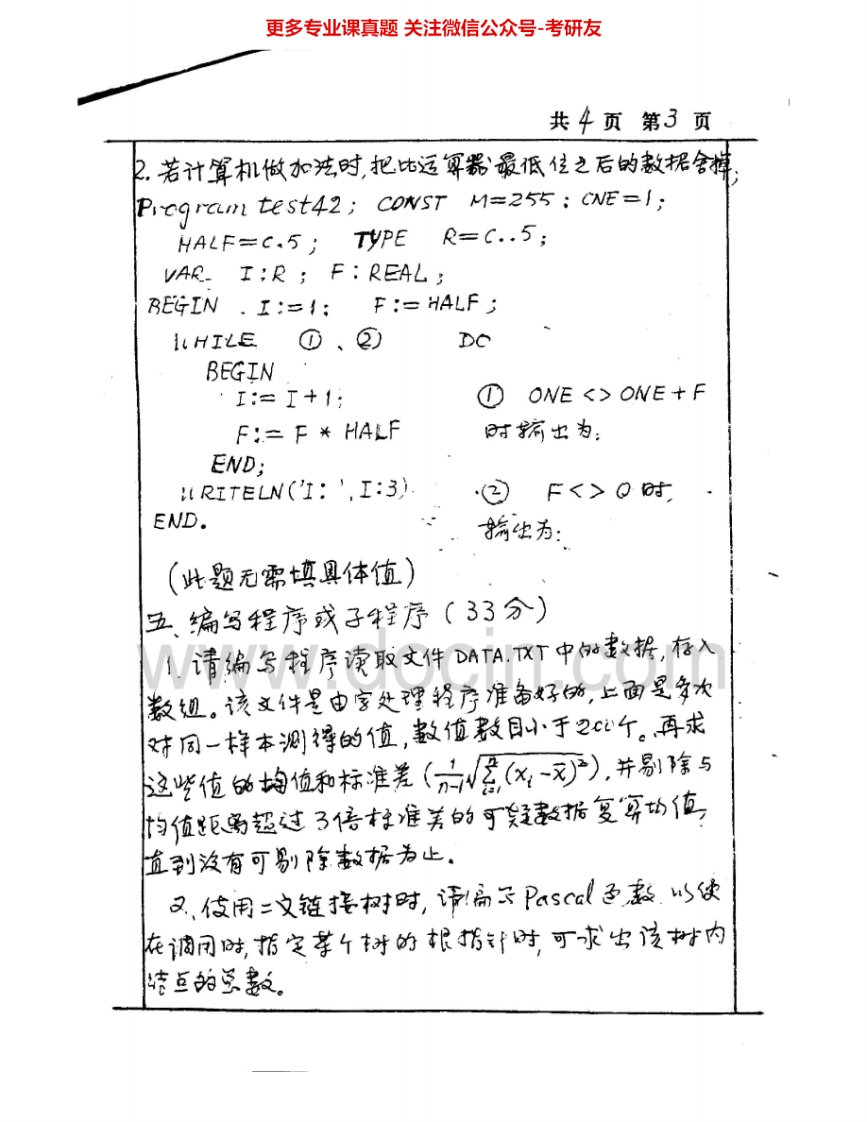 更多专业课真题 关注微信公众号-考研友
共4页 第3页
2. 若计算机做加法时,把比运算器最低位之后的数据舍掉;
Program test42; CONST M=255; ONE=1;
HALF=0.5; TYPE R=0..5;
VAR I:R; F:REAL;
BEGIN I:=1; F:=HALF;
WHILE ①、② DO
BEGIN
I:= I+1; ① ONE <> ONE + F
F:= F * HALF 时输出为:
END;
WRITELN('I: ',I:3) ② F<>0 时,
END. 输出为:
(此题无需填具体值)
五、编写程序或子程序(33分)
1. 请编写程序读取文件DATA.TXT中的数据,存入
数组。该文件是由字处理程序准备好的,上面是多次
对同一样本测得的值,数值数目小于200个。再求
这些值的均值和标准差(1/(n-1)√(Σ(i=1..n)(xᵢ-x̄)²)),并剔除与
均值距离超过3倍标准差的可疑数据复算均值,
直到没有可剔除数据为止。
2. 使用二叉链接树时,请编写Pascal函数以使
在调用时,指定某个树的根指针时,可求出该树内
结点的总数。
www.docin.com